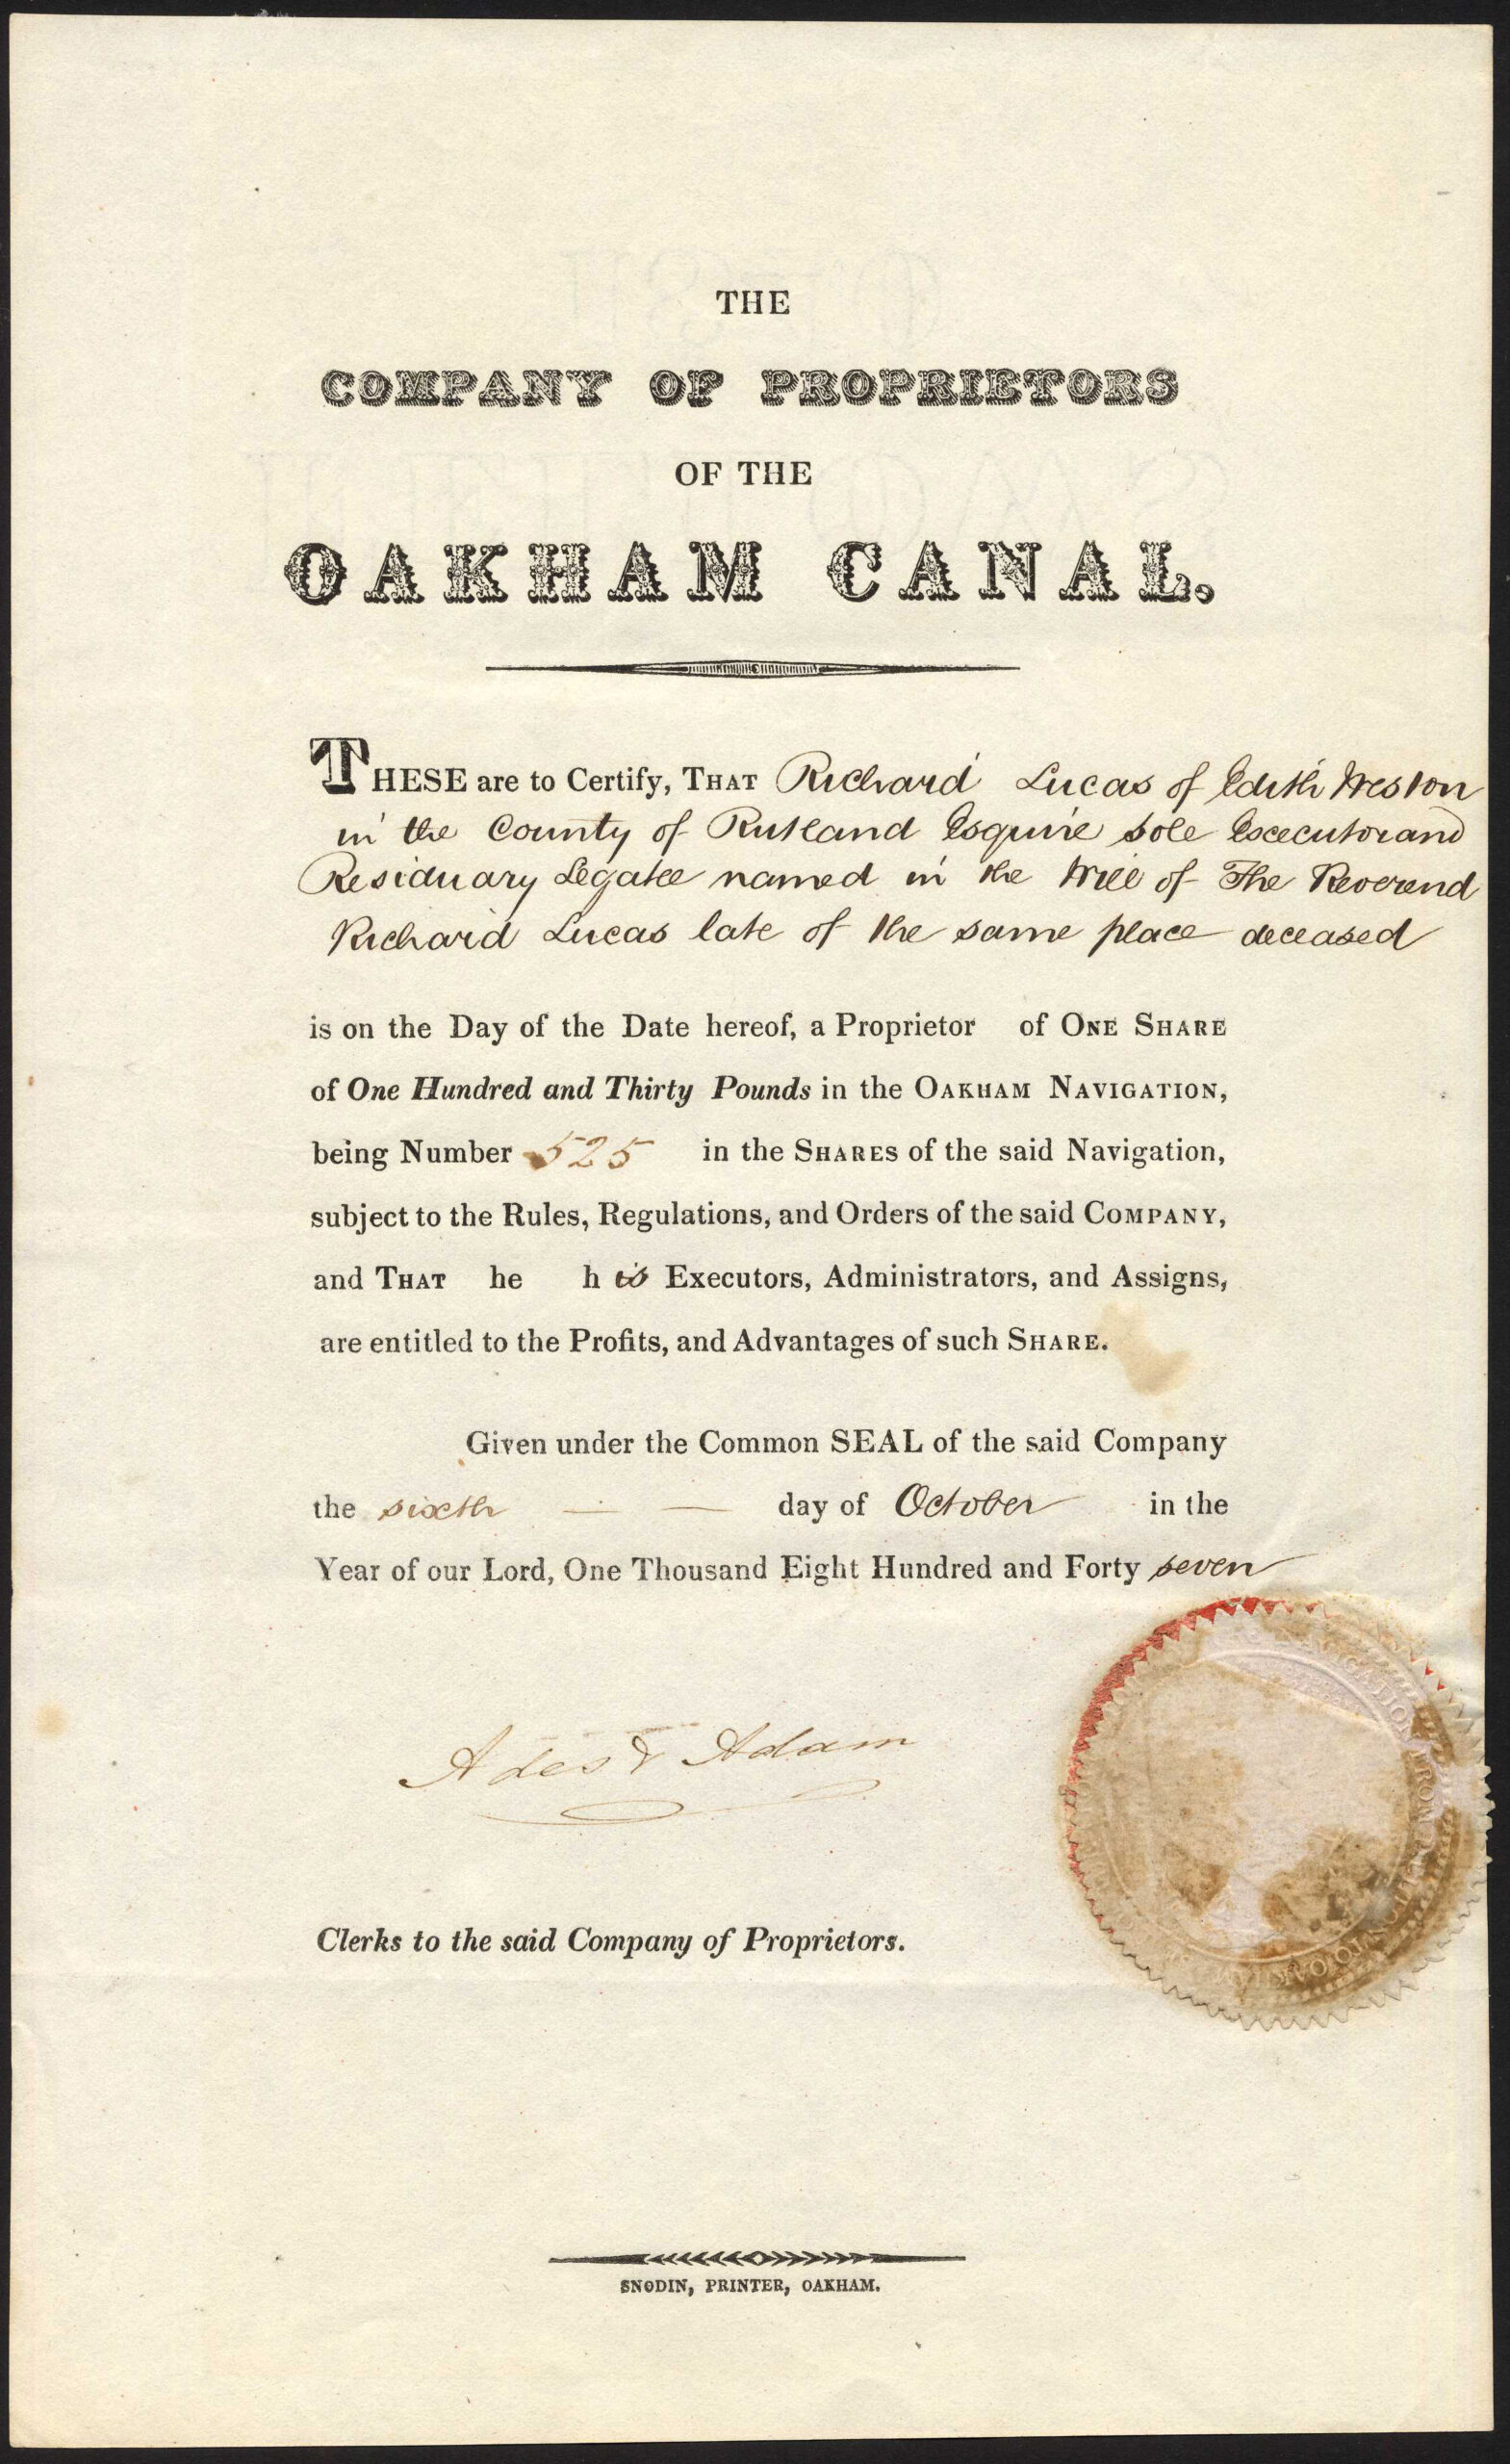 THE
COMPANY OF PROPRIETORS
OF THE
OAKHAM CANAL.
THESE are to Certify, THAT Richard Lucas of Edith Weston
in the County of Rutland Esquire sole Executor and
Residuary Legatee named in the Will of The Reverend
Richard Lucas late of the same place deceased
is on the Day of the Date hereof, a Proprietor of ONE SHARE
of One Hundred and Thirty Pounds in the OAKHAM NAVIGATION,
being Number 525 in the SHARES of the said Navigation,
subject to the Rules, Regulations, and Orders of the said COMPANY,
and THAT he h is Executors, Administrators, and Assigns,
are entitled to the Profits, and Advantages of such SHARE.
Given under the Common SEAL of the said Company
the sixth — — day of October in the
Year of our Lord, One Thousand Eight Hundred and Forty seven
& Adam
NAVIGATION FROM TO OAKHAM
Clerks to the said Company of Proprietors.
SNODIN, PRINTER, OAKHAM.